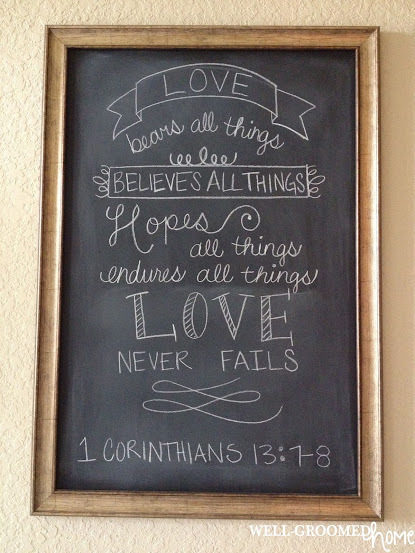 LOVE
bears all things
BELIEVES ALL THINGS
Hopes
all things
endures all things
LOVE
NEVER FAILS
1 CORINTHIANS 13:7-8
WELL-GROOMED home